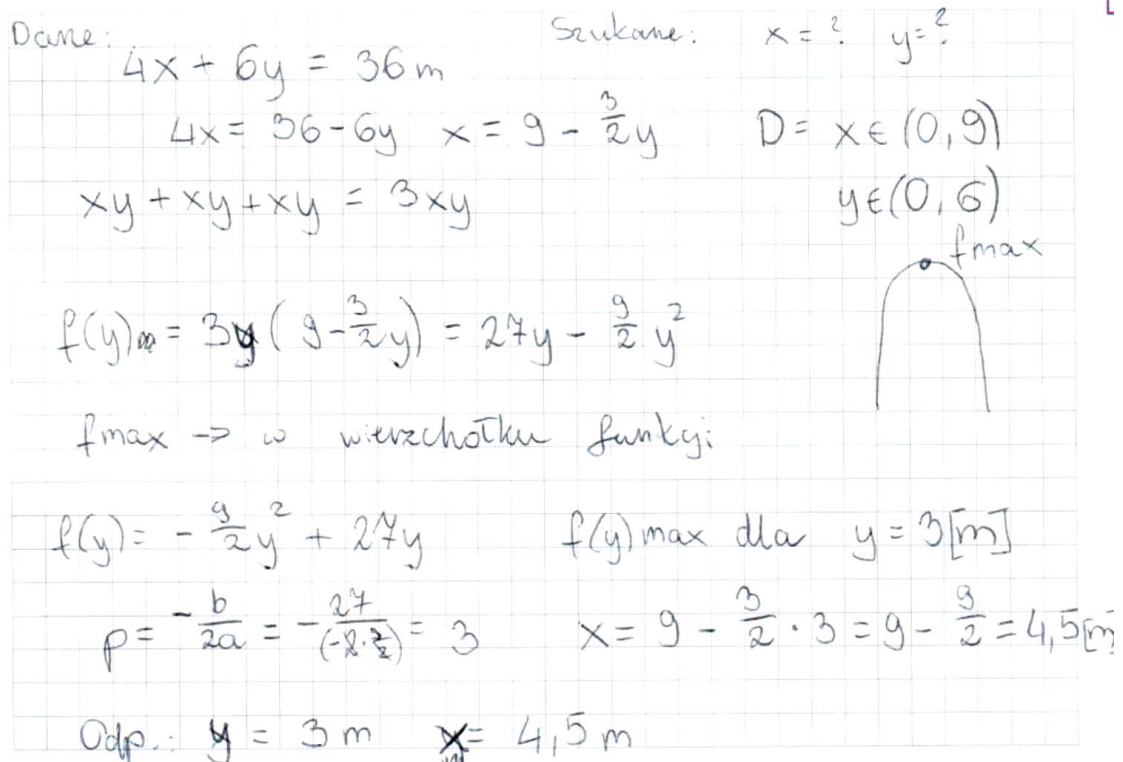 Dane: Szukane: x = ? y = ?
4x + 6y = 36 m
4x = 36 - 6y x = 9 - 3/2 y D = x ∈ (0, 9)
xy + xy + xy = 3xy y ∈ (0, 6)
fmax
f(y) = 3y (9 - 3/2 y) = 27y - 9/2 y²
fmax -> w wierzchołku funkcji
f(y) = - 9/2 y² + 27y f(y) max dla y = 3 [m]
p = -b/2a = - 27/(-2·9/2) = 3 x = 9 - 3/2 · 3 = 9 - 9/2 = 4,5 [m]
Odp.: y = 3 m x = 4,5 m